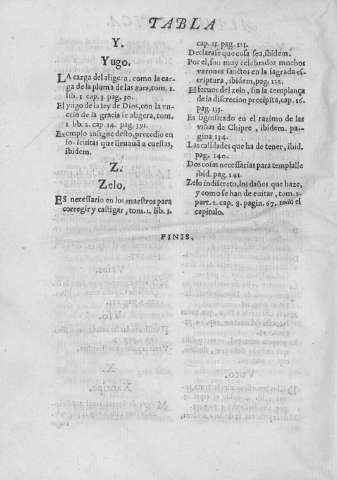 TABLA
Y.
Yugo.
LA carga del aligera, como la car-
ga de la pluma de las aues, tom. 1.
lib. 1. cap. 3. pag. 30.
El yugo de la ley de Dios, con la vn-
cion de la gracia se aligera, tom.
1. lib. 2. cap. 14. pag. 391.
Exemplo insigne desto, precedio en
los leuitas que lleuauā a cuestas,
ibidem.
Z.
Zelo,
ES necessario en los maestros para
corregir y castigar, tom. 1. lib. 2.
cap. 15. pag. 131.
Declarase que cosa sea, ibidem.
Por el, son muy celebrados muchos
varones sanctos en la sagrada es-
criptura, ibidem, pag. 132.
El feruor del zelo, sin la templança
de la discrecion precipita, cap. 16.
pag. 135.
Es significado en el razimo de las
viñas de Chipre, ibidem. pa-
gina 134.
Las calidades que ha de tener, ibid.
pag. 140.
Dos cosas necessarias para templalle
ibid. pag. 141.
Zelo indiscreto, los daños que haze,
y como se han de euitar, tom. 2.
part. 2. cap. 8. pagin. 67. todo el
capitulo.
FINIS.